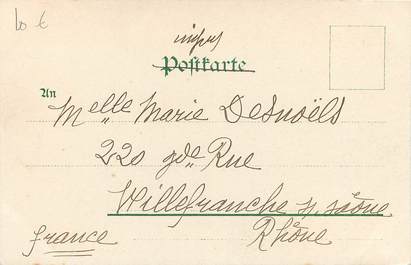 10 €
Postkarte
An
Melle Marie Desnoëls
220 gde Rue
Villefranche s/. saône
Rhône
france